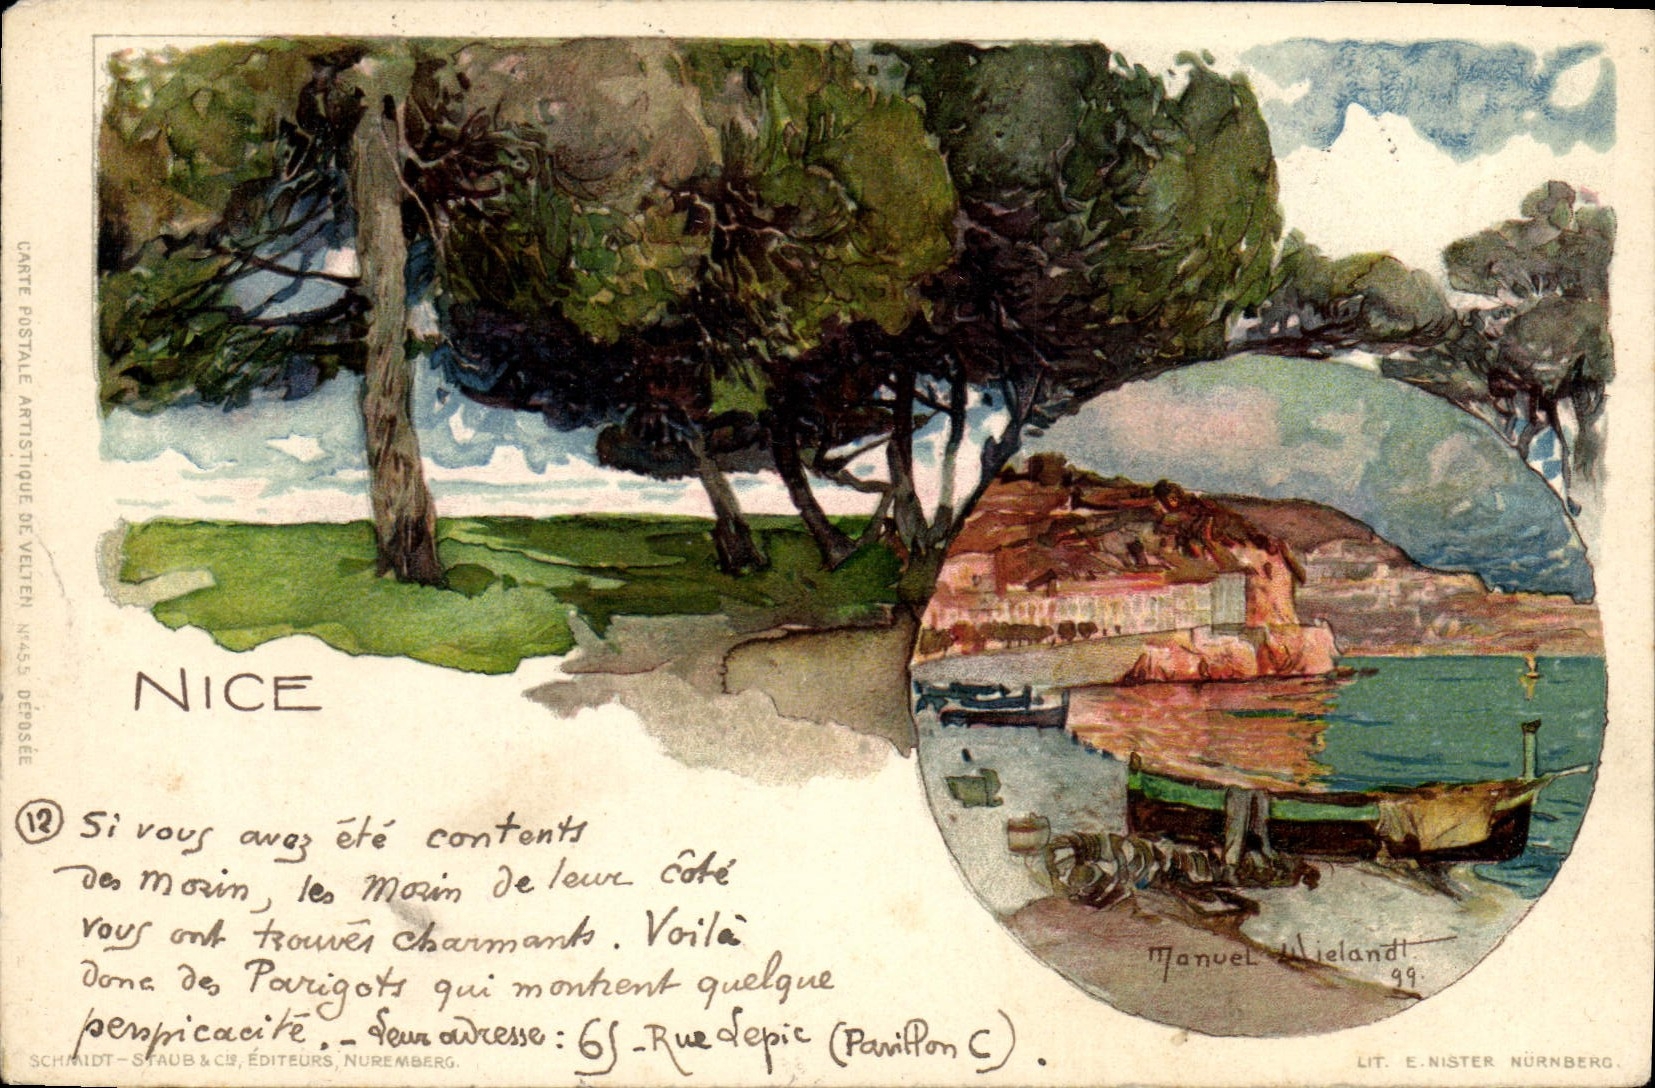 CARTE POSTALE ARTISTIQUE DE VELTEN N° 455 DÉPOSÉE
NICE
Manuel Wielandt.
99.
12 Si vous avez été contents
des Morin, les Morin de leur côté
vous ont trouvés charmants. Voilà
donc des Parigots qui montrent quelque
perspicacité. - Leur adresse : 65 - Rue Lepic (Pavillon C).
SCHMIDT-STAUB & Cie, ÉDITEURS, NUREMBERG.
LIT. E. NISTER NÜRNBERG.